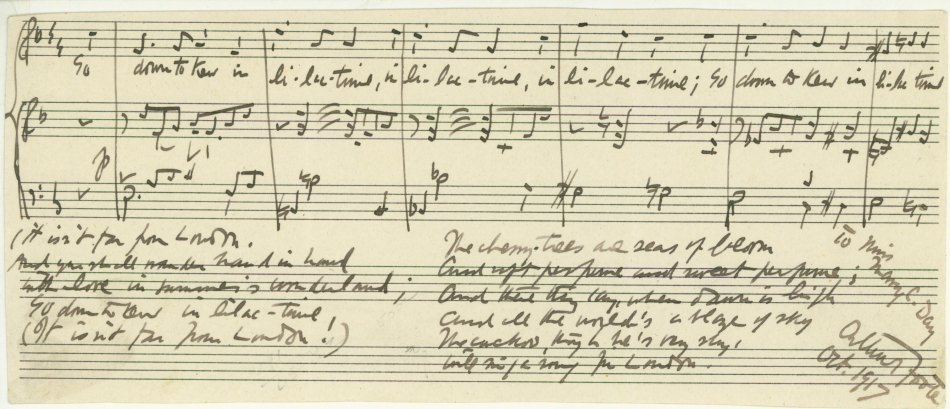 Go down to Kew in li-lac-time, in li-lac-time, in li-lac-time; Go down to Kew in li-lac time
p
(It isn't far from London.
And you shall wander hand in hand
with love in summer's wonderland;
Go down to Kew in lilac-time!
(It isn't far from London!)
The cherry-trees are seas of bloom
And soft perfume and sweet perfume;
And there they say, when dawn is high
And all the world's a blaze of sky
The cuckoo, though he's very shy,
will sing a song for London.
To Miss
Mary C. Day
Arthur Foote
Oct. 1917